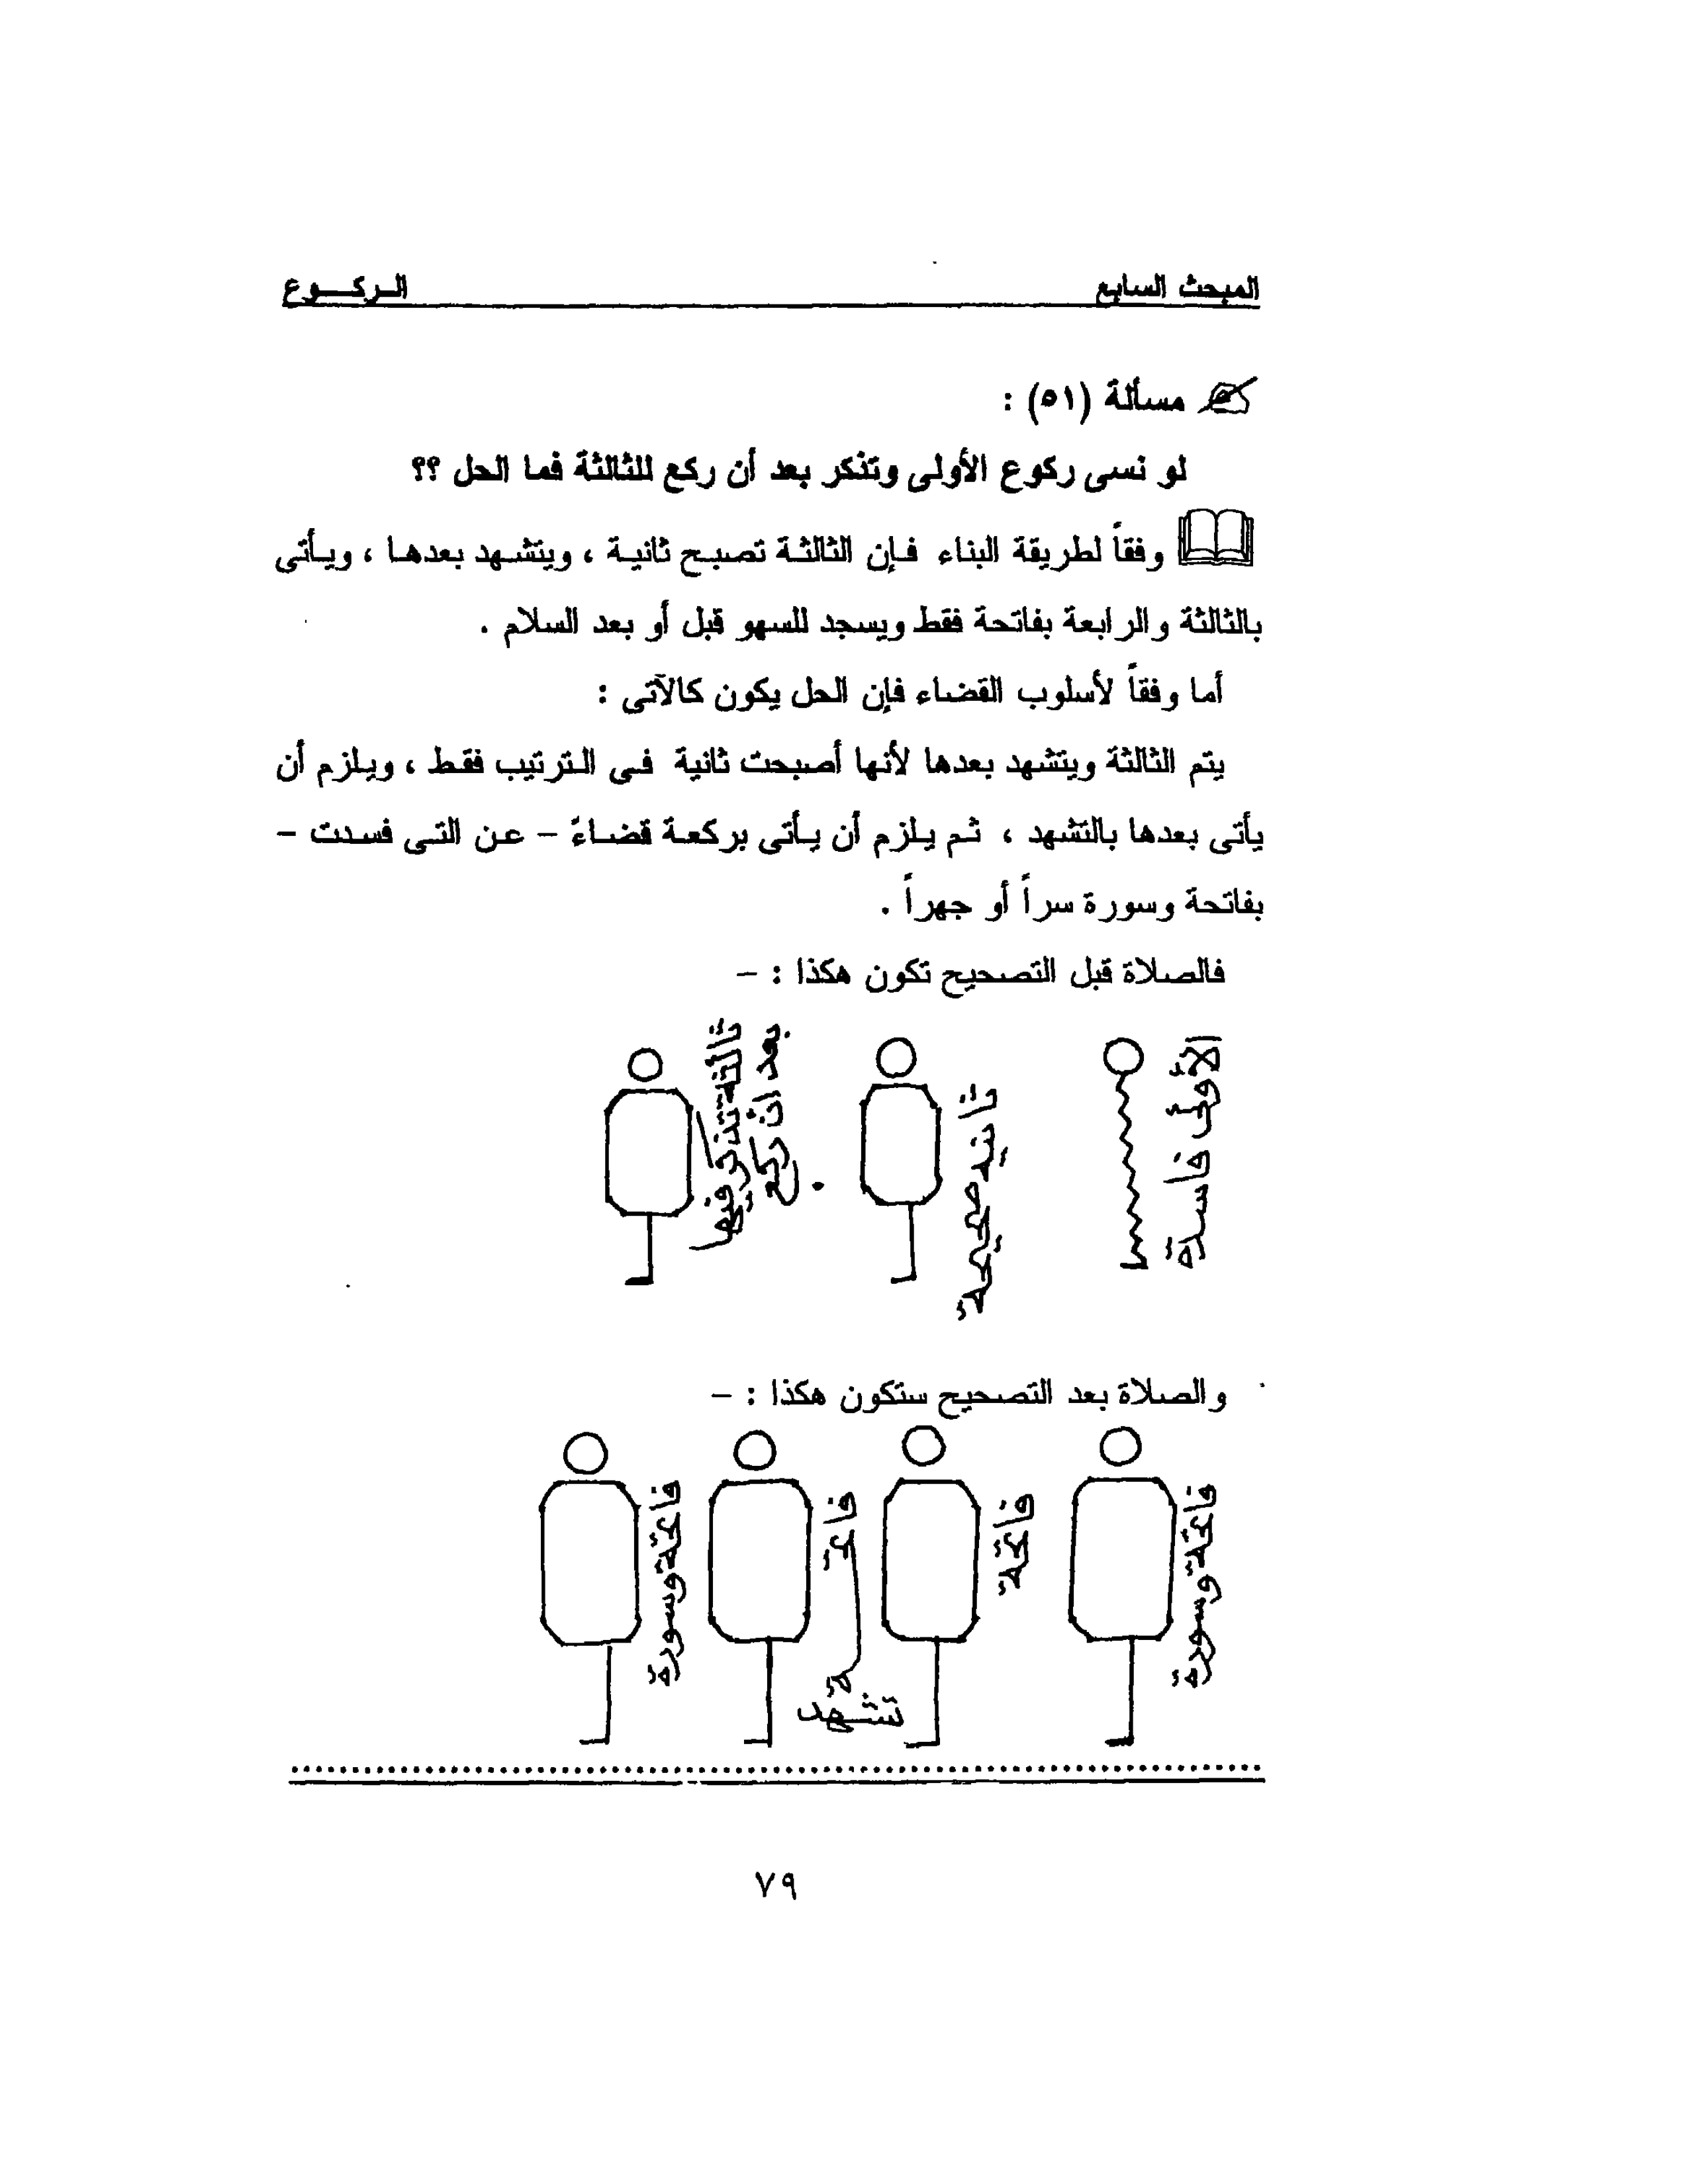 المبحث السابع
الركوع
مسألة (٥١) :
لو نسى ركوع الأولى وتذكر بعد أن ركع للثالثة فما الحل ؟؟
وفقاً لطريقة البناء فإن الثالثة تصبح ثانية ، ويتشهد بعدها ، ويأتى
بالثالثة والرابعة بفاتحة فقط ويسجد للسهو قبل أو بعد السلام .
أما وفقاً لأسلوب القضاء فإن الحل يكون كالآتى :
يتم الثالثة ويتشهد بعدها لأنها أصبحت ثانية فى الترتيب فقط ، ويلزم أن
يأتى بعدها بالتشهد ، ثم يلزم أن يأتى بركعة قضاءً – عن التى فسدت –
بفاتحة وسورة سراً أو جهراً .
فالصلاة قبل التصحيح تكون هكذا : –
الأولى فاسدة
ثانيه صحيحة
بعد ان ركع
ثالثة تذكر فيها
والصلاة بعد التصحيح ستكون هكذا : –
فاتحة وسورة
فاتحة
فاتحة
تشهد
فاتحة وسورة
٧٩